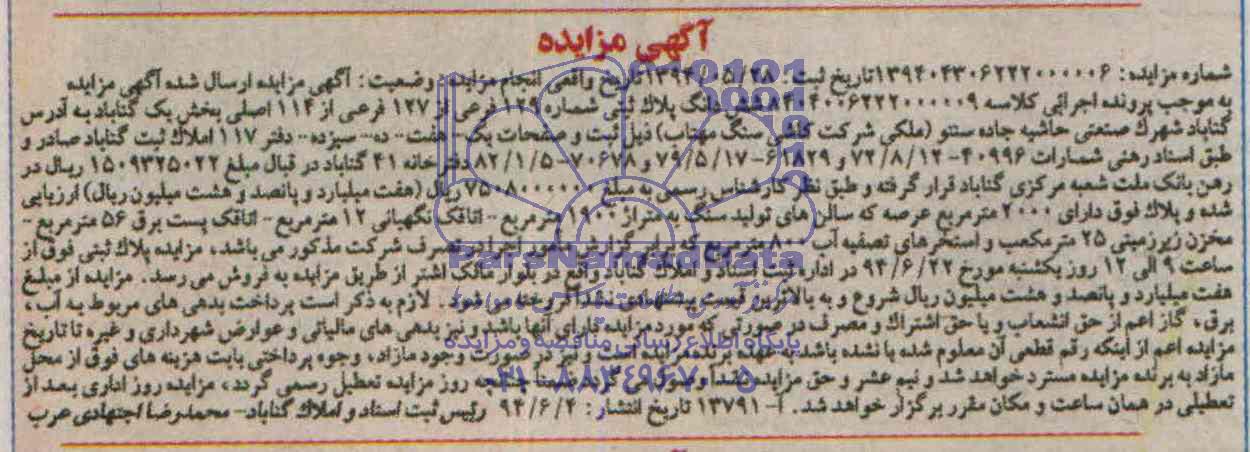 آگهی مزایده
شماره مزایده: ۱۳۹۴۰۴۳۰۶۲۲۲۰۰۰۰۰۶ تاریخ ثبت: ۱۳۹۴/۰۵/۲۸ تاریخ واقعی انجام مزایده: وضعیت: آگهی مزایده ارسال شده آگهی مزایده
به موجب پرونده اجرائی کلاسه ۸۴۰۴۰۰۶۲۲۲۰۰۰۰۰۹ ششدانگ پلاک ثبتی شماره ۱۲۹ فرعی از ۱۲۷ فرعی از ۱۱۴ اصلی بخش یک گناباد به آدرس
گناباد شهرک صنعتی حاشیه جاده سنتو (ملکی شرکت کاشی سنگ مهتاب) ذیل ثبت و صفحات یک- هفت- ده- سیزده- دفتر ۱۱۷ املاک ثبت گناباد صادر و
طبق اسناد رهنی شمارات ۴۰۹۹۶-۷۲/۸/۱۲ و ۶۲۸۲۹-۷۹/۵/۱۷ و ۷۰۶۷۸-۸۲/۱/۵ دفترخانه ۴۱ گناباد در قبال مبلغ ۱۵۰۹۳۲۵۰۲۲ ریال در
رهن بانک ملت شعبه مرکزی گناباد قرار گرفته و طبق نظر کارشناس رسمی به مبلغ ۷۵۰۸۰۰۰۰۰۰ ریال (هفت میلیارد و پانصد و هشت میلیون ریال) ارزیابی
شده و پلاک فوق دارای ۲۰۰۰ مترمربع عرصه که سالن های تولید سنگ به متراژ ۱۹۰۰ مترمربع - اتاقک نگهبانی ۱۲ مترمربع - اتاقک پست برق ۵۶ مترمربع -
مخزن زیرزمینی ۲۵ مترمکعب و استخرهای تصفیه آب ۸۰۰ مترمربع که برابر گزارش مامور اجرا در تصرف شرکت مذکور می باشد، مزایده پلاک ثبتی فوق از
ساعت ۹ الی ۱۲ روز یکشنبه مورخ ۹۴/۶/۲۲ در اداره ثبت اسناد و املاک گناباد واقع در بلوار مالک اشتر از طریق مزایده به فروش می رسد. مزایده از مبلغ
هفت میلیارد و پانصد و هشت میلیون ریال شروع و به بالاترین قیمت پیشنهادی نقداً فروخته می شود. لازم به ذکر است پرداخت بدهی های مربوط به آب،
برق، گاز اعم از حق انشعاب و یا حق اشتراک و مصرف در صورتی که مورد مزایده دارای آنها باشد و نیز بدهی های مالیاتی و عوارض شهرداری و غیره تا تاریخ
مزایده اعم از اینکه رقم قطعی آن معلوم شده یا نشده باشد به عهده برنده مزایده است و نیز در صورت وجود مازاد، وجوه پرداختی بابت هزینه های فوق از محل
مازاد به برنده مزایده مسترد خواهد شد و نیم عشر و حق مزایده نقداً وصول می گردد ضمناً چنانچه روز مزایده تعطیل رسمی گردد، مزایده روز اداری بعد از
تعطیلی در همان ساعت و مکان مقرر برگزار خواهد شد. آ-۱۳۷۹۱ تاریخ انتشار: ۹۴/۶/۴ رئیس ثبت اسناد و املاک گناباد- محمدرضا اجتهادی عرب
ParsNamadData
پایگاه اطلاع رسانی مناقصه و مزایده
۰۲۱-۸۸۳۴۹۶۷۰-۵